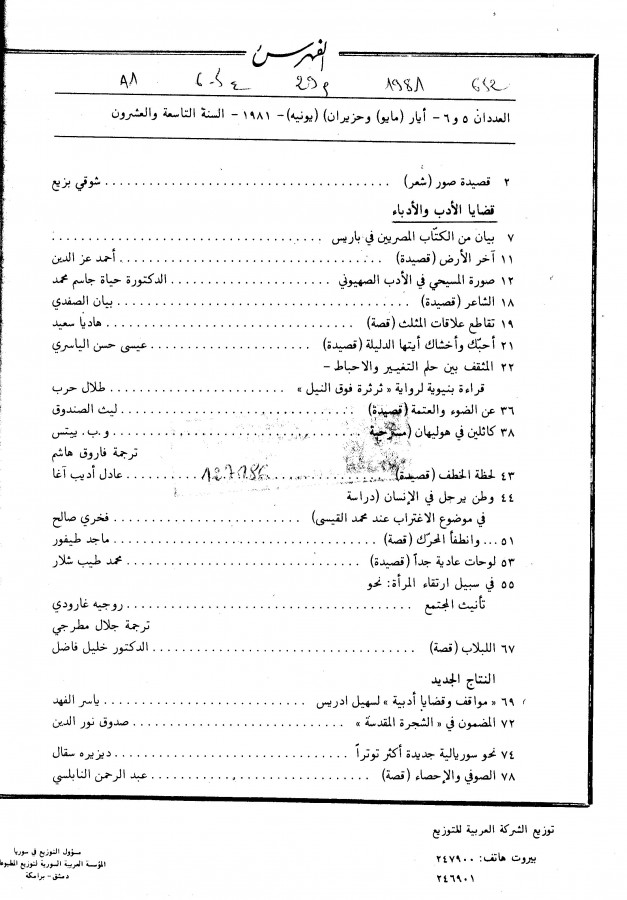 الفهرس
1981
العددان ٥ و٦ - أيار (مايو) وحزيران (يونيه) - ١٩٨١ - السنة التاسعة والعشرون
٢ قصيدة صور (شعر) شوقي بزيع
قضايا الأدب والأدباء
٧ بيان من الكتّاب المصريين في باريس
١١ آخر الأرض (قصيدة) أحمد عز الدين
١٢ صورة المسيحي في الأدب الصهيوني الدكتورة حياة جاسم محمد
١٨ الشاعر (قصيدة) بيان الصفدي
١٩ تقاطع علاقات المثلث (قصة) هاديا سعيد
٢١ أحبّك وأخشاك أيتها الدليلة (قصيدة) عيسى حسن الياسري
٢٢ المثقف بين حلم التغيير والاحباط -
قراءة بنيوية لرواية « ثرثرة فوق النيل » طلال حرب
٣٦ عن الضوء والعتمة (قصيدة) ليث الصندوق
٣٨ كاثلين في هوليهان (مسرحية و. ب. ييتس
ترجمة فاروق هاشم
٤٣ لحظة الخطف (قصيدة) عادل أديب آغا
٤٤ وطن يرجل في الإنسان (دراسة
في موضوع الاغتراب عند محمد القيسي) فخري صالح
٥١... وانطفأ المحرّك (قصة) ماجد طيفور
٥٣ لوحات عادية جداً (قصيدة) محمد طيب شلار
٥٥ في سبيل ارتقاء المرأة: نحو
تأنيث المجتمع روجيه غارودي
ترجمة جلال مطرجي
٦٧ اللبلاب (قصة) الدكتور خليل فاضل
النتاج الجديد
٦٩ « مواقف وقضايا أدبية » لسهيل ادريس ياسر الفهد
٧٢ المضمون في « الشجرة المقدسة » صدوق نور الدين
٧٤ نحو سوريالية جديدة أكثر توتراً ديزيره سقال
٧٨ الصوفي والإحصاء (قصة) عبد الرحمن النابلسي
توزيع الشركة العربية للتوزيع
بيروت هاتف: ٢٤٧٩٠٠
٢٤٦٩٠١
مسؤول التوزيع في سوريا
المؤسسة العربية السورية لتوزيع المطبوعا
دمشق - برامكة